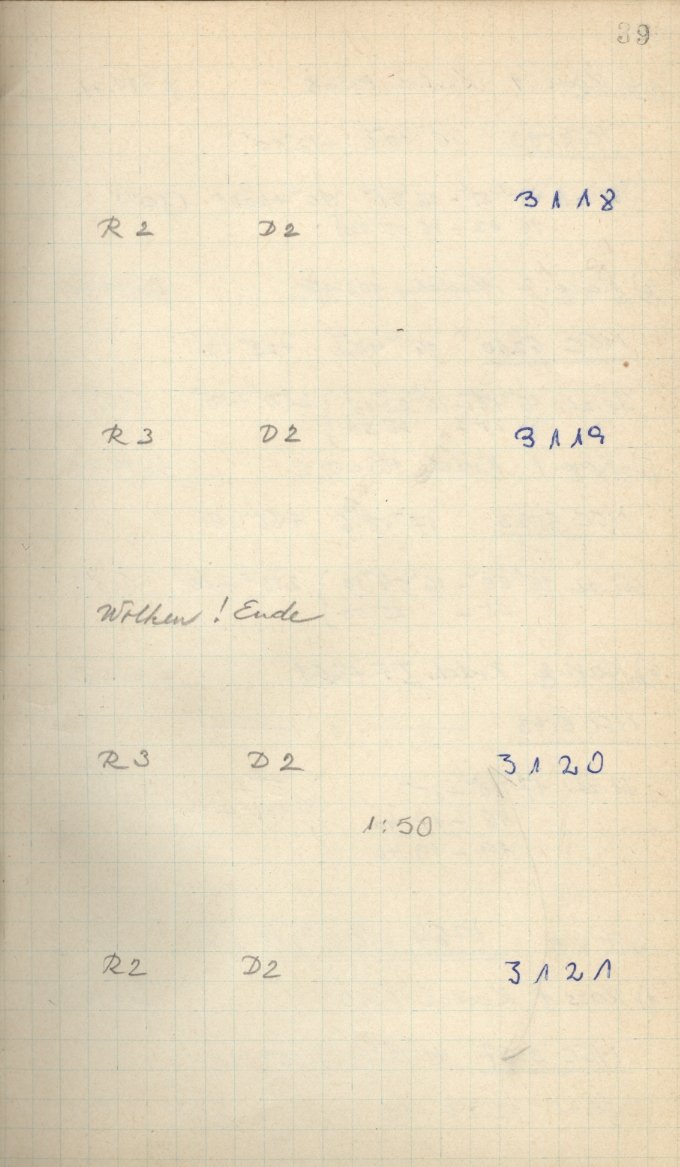 39
3118
R2 D2
R3 D2 3119
Wolken! Ende
R3 D2 3120
1:50
R2 D2 3121